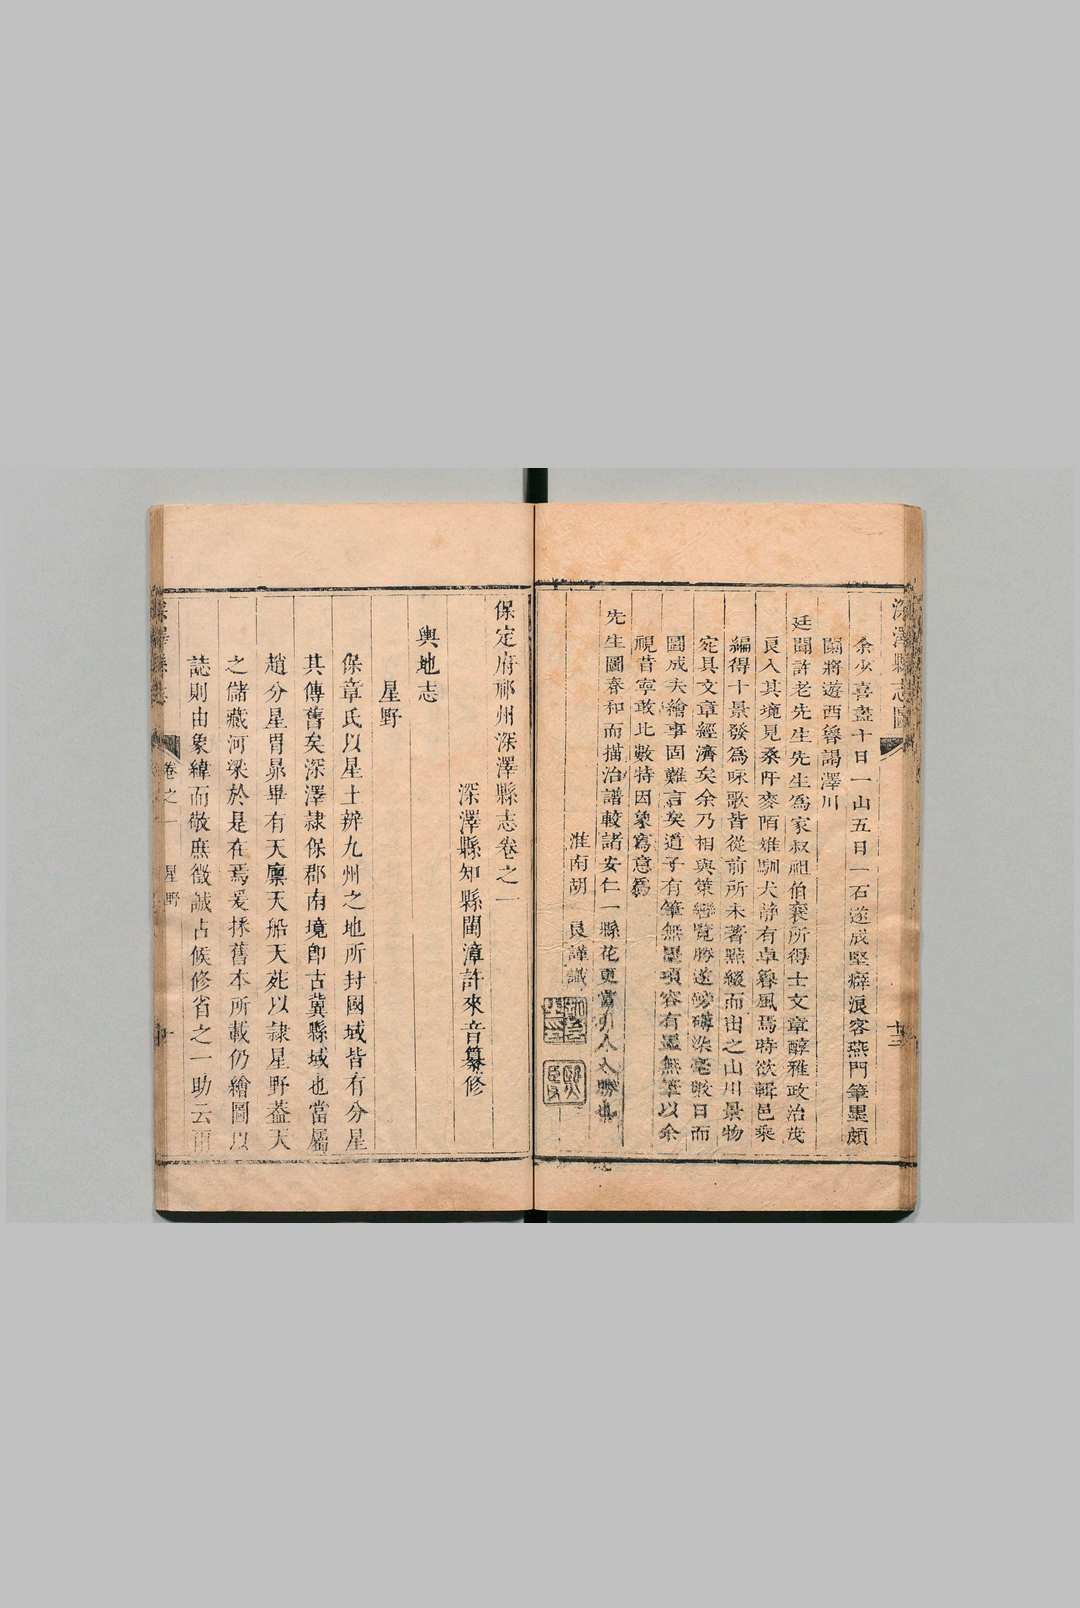 深澤縣志圖
十三
余少喜盡十日一山五日一石遂成堅癖浪客燕門筆墨頗
闌將遊西魯謁澤川
廷聞許老先生先生為家叔祖伯襄所得士文章醇雅政治茂
良入其境見桑阡麥陌雉馴犬静有卓魯風焉時欲輯邑乘
編得十景發為咏歌皆從前所未著㸃綴而出之山川景物
宛具文章經濟矣余乃相與策蹇覽勝遂磅礴染毫暇日而
圖成夫繪事固難言矣道子有筆無墨項容有墨無筆以余
視昔寧敢比數特因象寫意爲
先生圖春和而描治譜較諸安仁一縣花更當引人入勝也
淮南胡 良謹識
保定府祁州深澤縣志卷之一
深澤縣知縣閩漳許來音纂修
輿地志
星野
保章氏以星土辨九州之地所封國域皆有分星
其傳舊矣深澤隷保郡南境卽古冀縣域也當屬
趙分星胃昴畢有天廩天船天𣦸以隷星野葢天
之儲藏河梁於是在焉爰揉舊本所載仍繪圖以
誌則由象緯而敬庶徵誠占候修省之一助云爾
深澤縣志
卷之一 星野